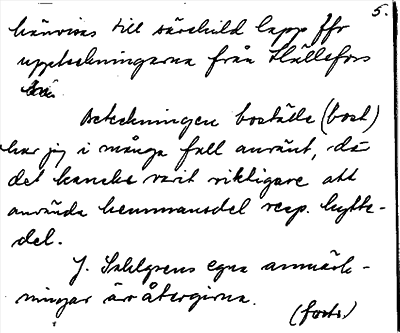 5.
hänvisas till särskild lapp ffr
uppteckningarna från Hällefors
Beteckningen boställe (bost)
har jag i många fall använt, då
det kanske varit riktigare att
använda hemmansdel resp. hytte-
del.
J. Sahlgrens egna anmärk-
ningar är återgivna.
(forts.)